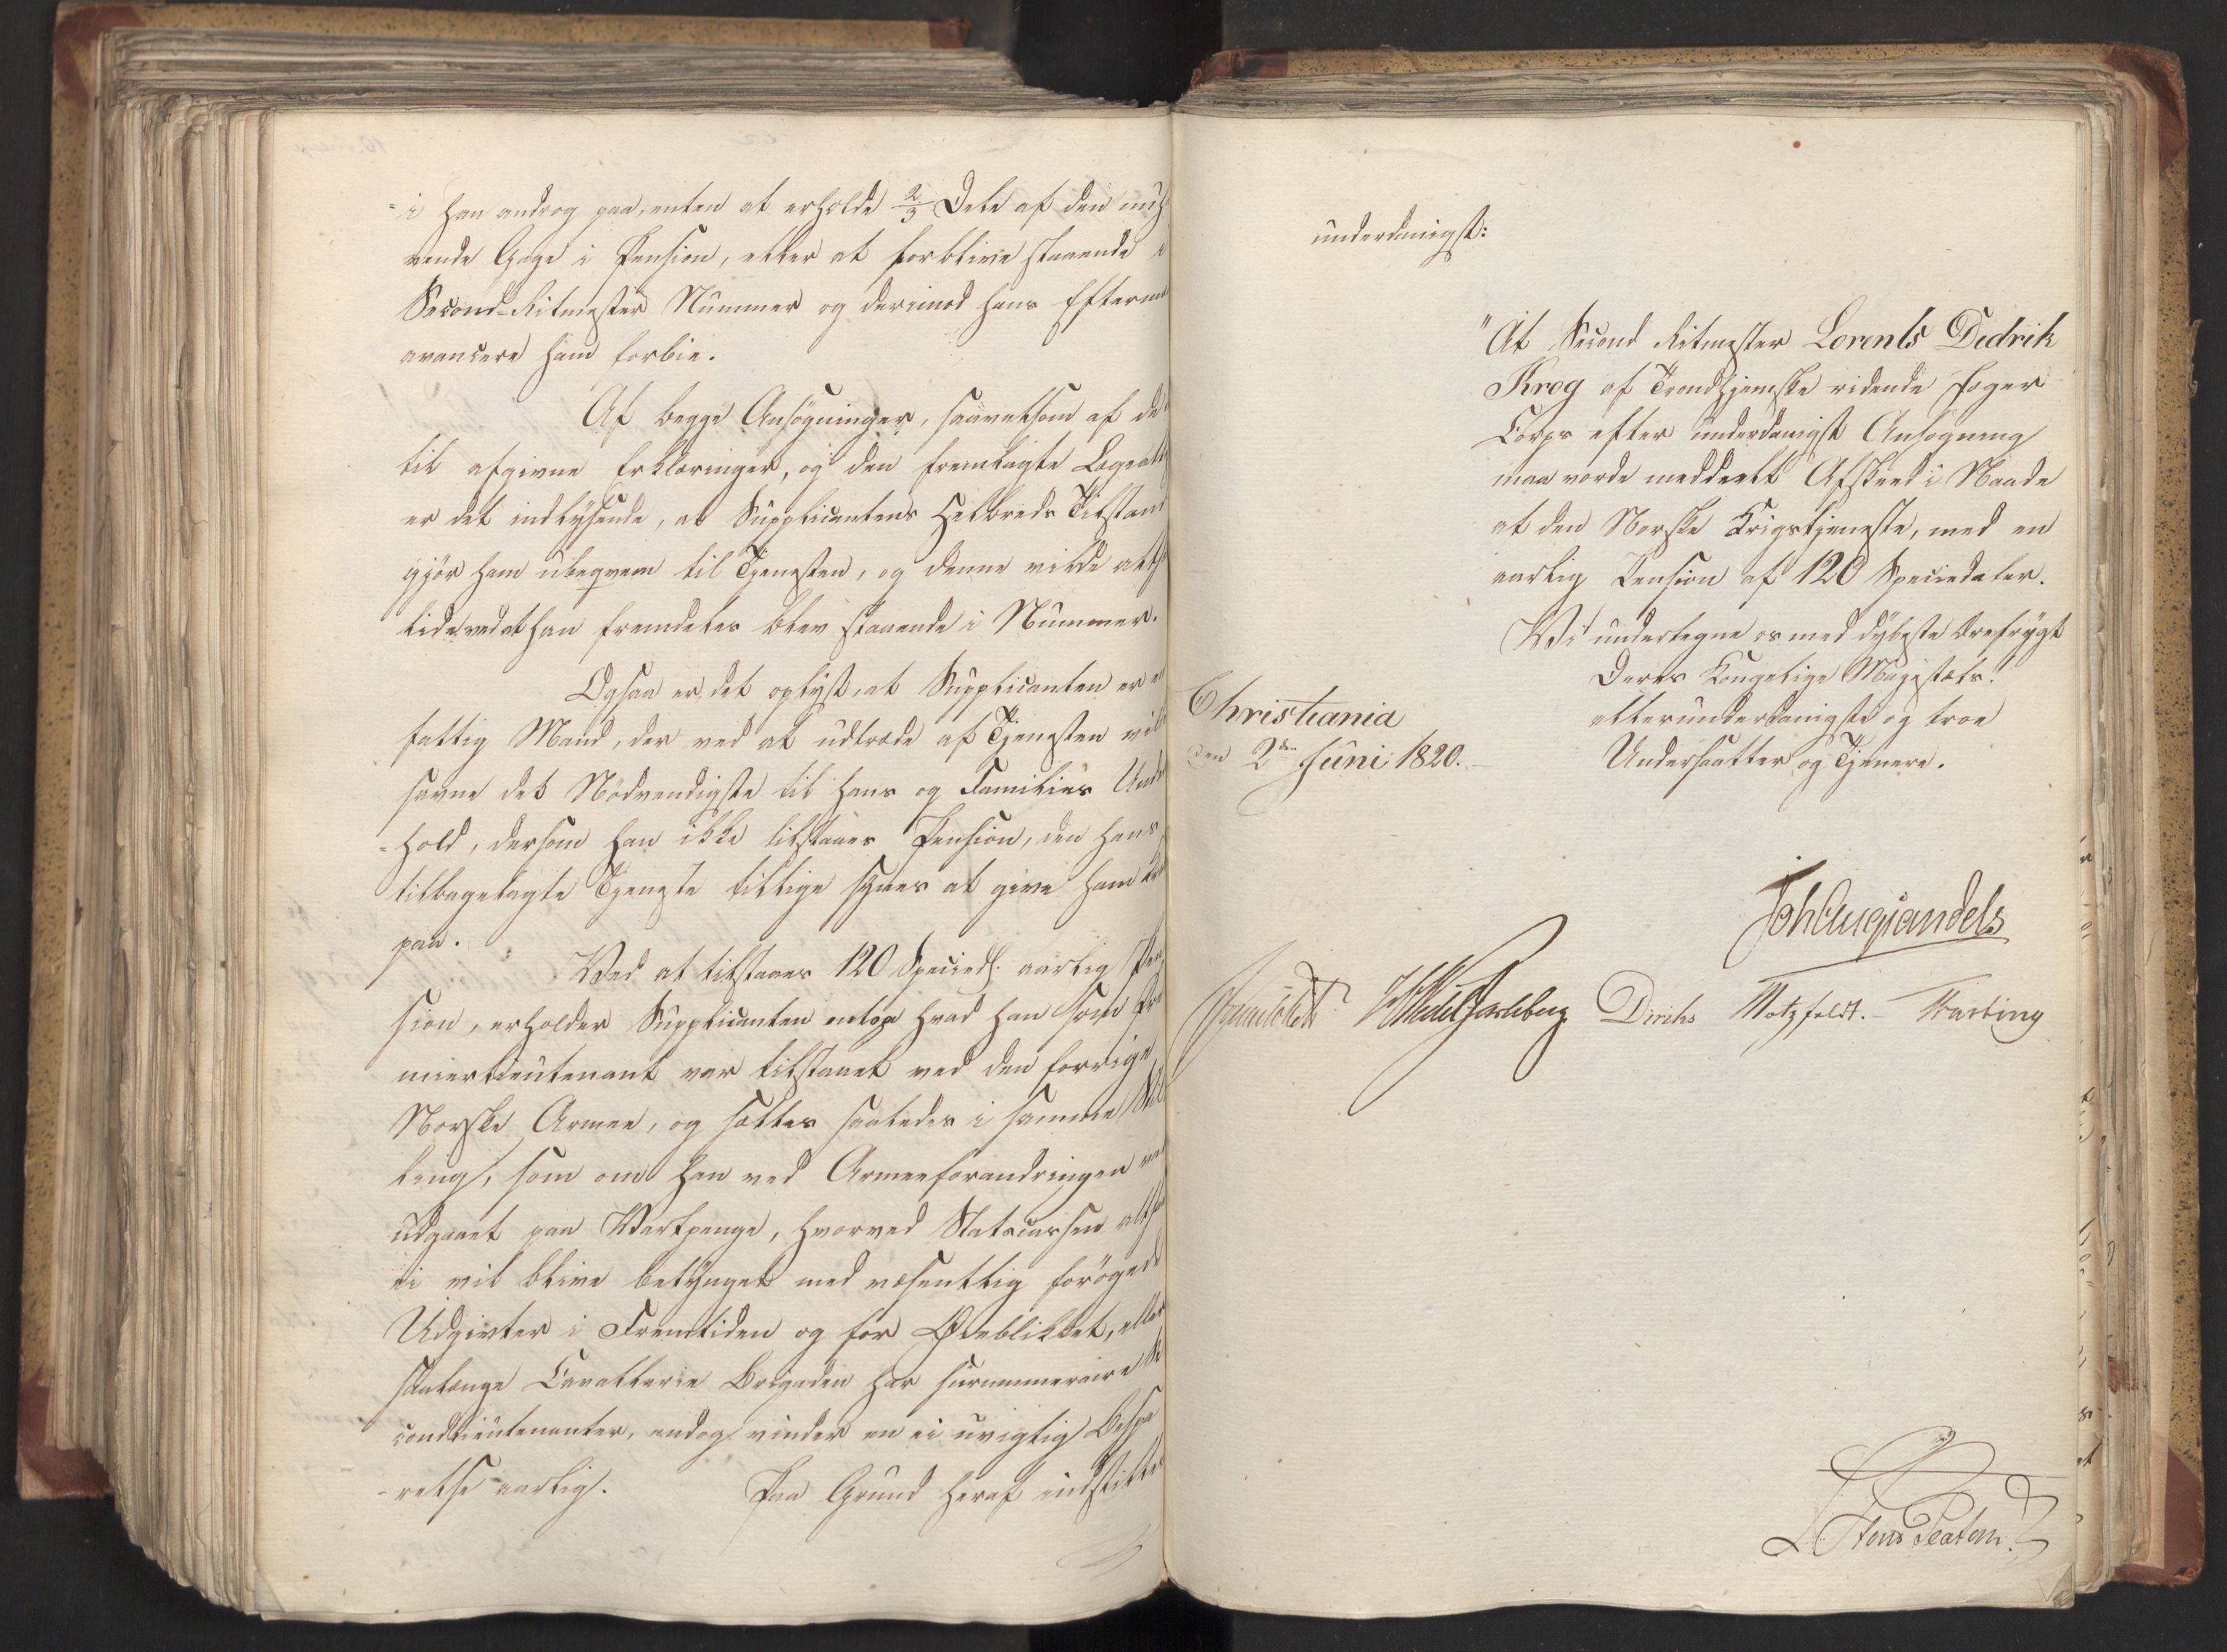 i han androg paa, enten at erholde 2/3 Dele af den nuh
vende Gage i Pension, eller at forblive staaende i
Second-Ritmester Nummer og derimod hans Efterm
avancere ham forbie.
Af begge Ansøgninger, saavelsom af de
til afgivne Erklæringer, og den fremlagte Lægeatt
er det indlysende, at Supplicantens Helbreds Tilstand
gjör ham ubeqvem til Tjenesten, og denne vilde altsaa
lide ved at han fremdeles blev staaende i Nummer.
Ogsaa er det oplyst, at Supplicanten er en
fattig Mand, der ved at udtræde af Tjenesten vil
savne det Nödvendigste til hans og Families Under
-hold, dersom han ikke tilstaaes Pension, den hans
tilbagelagte Tjeneste tillige synes at give ham
paa.
Ved at tilstaaes 120 Specied. aarlig Pen
sion, erholder Supplicanten netop hvad han som Pre
mierlieutenant var tilstaaet ved den forrige
Norske Armee, og sættes saaledes i samme Stil
ling, som om han ved Armeeforandringen var
udgaaet paa Vartpenge, hvorved Statscassen altsaa
ei vil blive betynget med væsentlig forögede
Udgivter i Fremtiden og for Øieblikket, eller
saalænge Cavallerie Brigaden har surnumeraire Se
condlieutenanter, endog vinder en ei uvigtig Bespa
-relse aarlig. Paa Grund heraf indstilles
underdanigst:
"At Second Ritmester Lorents Dedrik
Krog af Trondhjemske ridende Jæger
Corps efter underdanigst Ansøgning
maa vorde meddeelt Afskeed i Naade
af den Norske Krigstjeneste, med en
aarlig Pension af 120 Speciedaler.
Vi undertegne os med dybeste Ærefrygt
Deres Kongelige Majestæts!
allerunderdanigste og troe
Undersaatter og Tjenere.
Christiania
den 2den Juni 1820.
Joh Aug Sandels
HWedel Jarlsberg Diriks Motzfeldt.